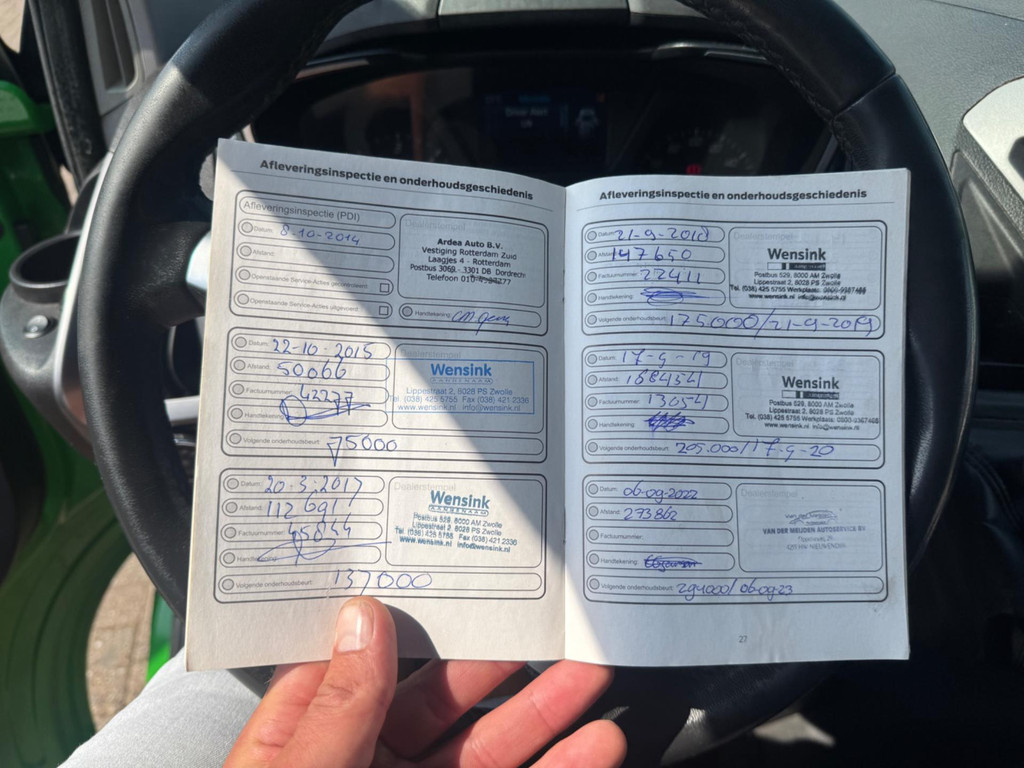 Afleveringsinspectie en onderhoudsgeschiedenis
Afleveringsinspectie (PDI)
Datum: 8-10-2014
Afstand:
Openstaande Service-Acties
Openstaande Service-Acties uitgevoerd:
Ardea Auto B.V.
Vestiging Rotterdam Zuid
Laagjes 4 - Rotterdam
Postbus 3069 - 3301 DB Dordrecht
Telefoon 010-
Handtekening:
Datum: 22-10-2015
Afstand: 50066
Factuurnummer: 42277
Handtekening:
Volgende onderhoudsbeurt: 75000
Dealerstempel
Wensink
Lippestraat 2, 8028 PS Zwolle
Tel. (038) 425 5755 Fax (038) 421 2336
www.wensink.nl info@wensink.nl
Datum: 20-3-2017
Afstand: 112691
Factuurnummer: 45034
Handtekening:
Volgende onderhoudsbeurt: 137000
Dealerstempel
Wensink
Postbus 529, 8000 AM Zwolle
Lippestraat 2, 8028 PS Zwolle
Tel. (038) 425 5755 Fax (038) 421 2336
www.wensink.nl info@wensink.nl
Afleveringsinspectie en onderhoudsgeschiedenis
Datum: 21-9-2018
Afstand: 147650
Factuurnummer: 22411
Handtekening:
Volgende onderhoudsbeurt: 175000/21-9-2019
Wensink
Postbus 529, 8000 AM Zwolle
Lippestraat 2, 8028 PS Zwolle
Tel. (038) 425 5755 Werkplaats: 0900-9367488
www.wensink.nl info@wensink.nl
Datum: 17-9-19
Afstand: 168454
Factuurnummer: 13054
Handtekening:
Volgende onderhoudsbeurt: 205.000/17-9-20
Dealerstempel
Wensink
Postbus 529, 8000 AM Zwolle
Lippestraat 2, 8028 PS Zwolle
Tel. (038) 425 5755 Werkplaats:
www.wensink.nl info@wensink.nl
Datum: 06-09-2022
Afstand: 273862
Factuurnummer:
Handtekening:
Volgende onderhoudsbeurt: 294000/06-09-23
Dealerstempel
VAN DER MEIJDEN AUTOSERVICE BV
27